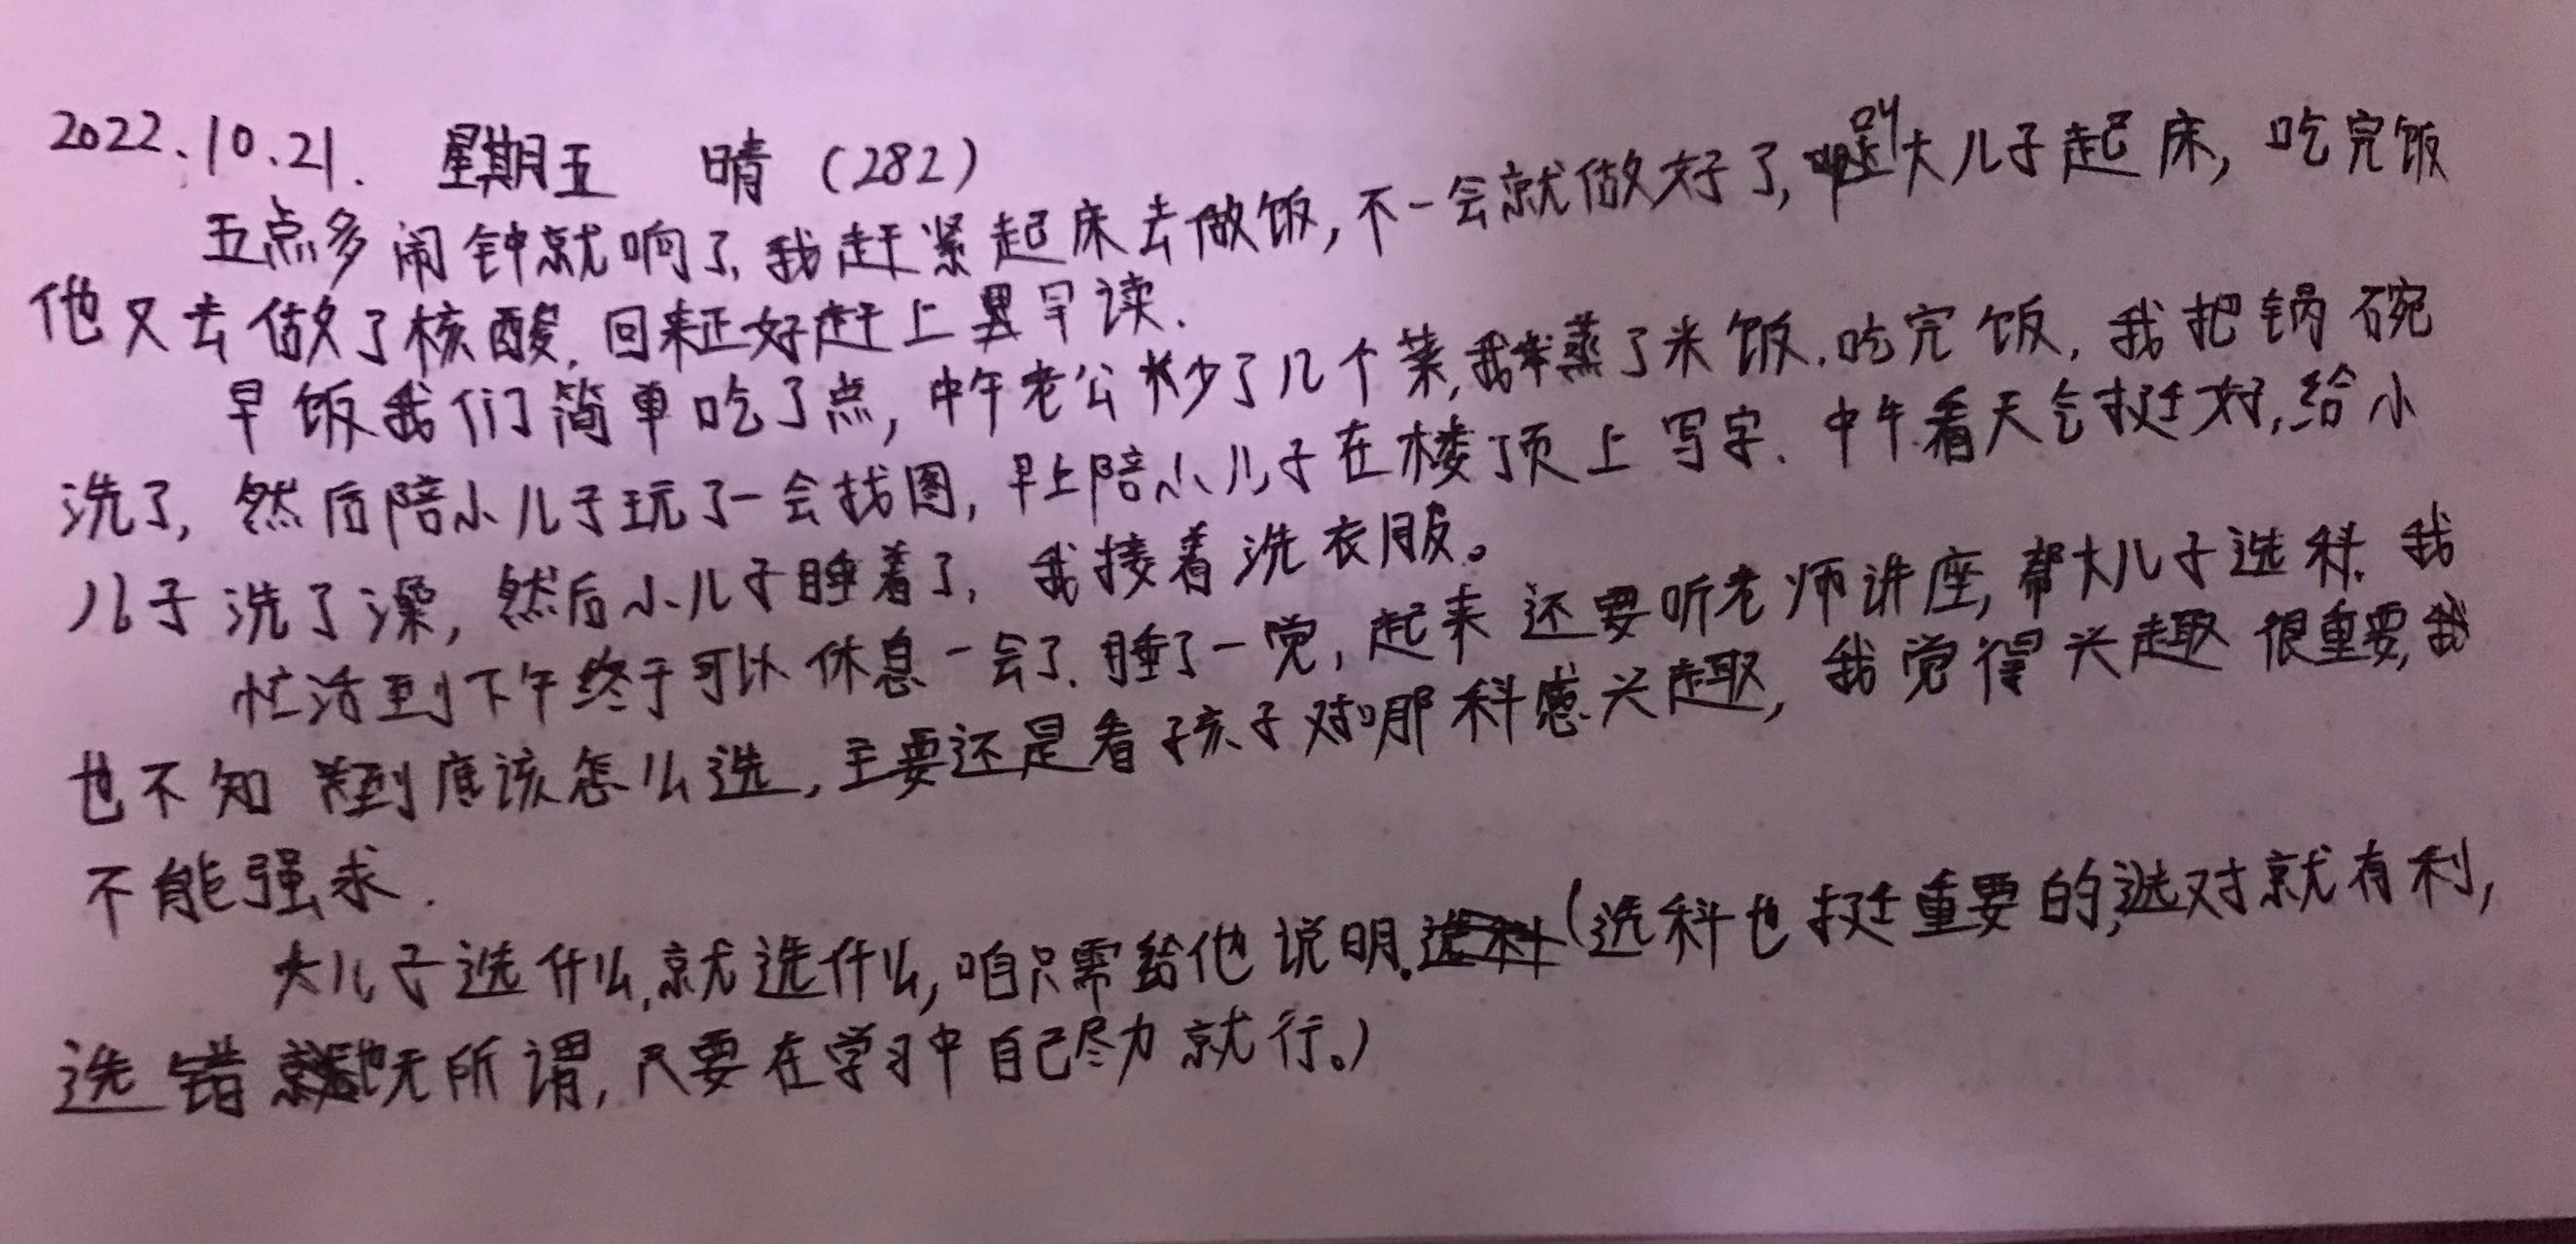 2022.10.21. 星期五 晴（282）
五点多闹钟就响了,我赶紧起床去做饭,不一会就做好了,叫大儿子起床,吃完饭
他又去做了核酸,回来正好赶上早读.
早饭我们简单吃了点,中午老公炒了几个菜,我蒸了米饭.吃完饭,我把锅碗
洗了,然后陪小儿子玩了一会找图,早上陪小儿子在楼顶上写字.中午看天气挺好,给小
儿子洗了澡,然后小儿子睡着了,我接着洗衣服。
忙活到下午终于可以休息一会了.睡了一觉,起来还要听老师讲座,帮大儿子选科.我
也不知到底该怎么选,主要还是看孩子对哪科感兴趣,我觉得兴趣很重要,我
不能强求.
大儿子选什么,就选什么,咱只需给他说明.(选科也挺重要的,选对就有利,
选错也无所谓,只要在学习中自己尽力就行。)